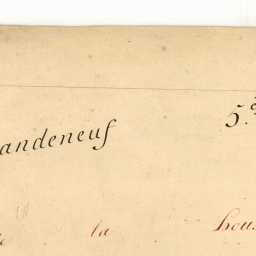 andeneuf 5.e
la hous